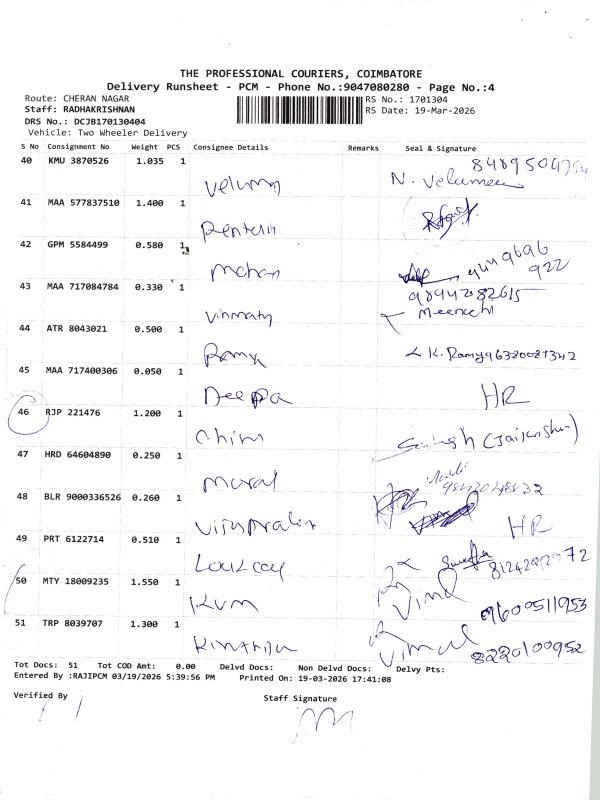 THE PROFESSIONAL COURIERS, COIMBATORE
Delivery Runsheet - PCM - Phone No.:9047080280 - Page No.:4
Route: CHERAN NAGAR
RS No.: 1701304
Staff: RADHAKRISHNAN
RS Date: 19-Mar-2026
DRS No.: DCJB170130404
Vehicle: Two Wheeler Delivery
S No Consignment No Weight PCS Consignee Details Remarks Seal & Signature
40 KMU 3870526 1.035 1
N. Velumee
41 MAA 577837510 1.400 1
42 GPM 5584499 0.580 1
Mohan
922
43 MAA 717084784 0.330 1
9894282615
Vinmaty
Meenachi
44 ATR 8043021 0.500 1
Ramya
K. Ramya
45 MAA 717400306 0.050 1
Deepa
HR
46 RJP 221476 1.200 1
47 HRD 64604890 0.250 1
Mural
48 BLR 9000336526 0.260 1
HR
49 PRT 6122714 0.510 1
50 MTY 18009235 1.550 1
Vimal
09600511953
51 TRP 8039707 1.300 1
Vimal
8220100952
Tot Docs: 51 Tot COD Amt: 0.00 Delvd Docs: Non Delvd Docs: Delvy Pts:
Entered By :RAJIPCM 03/19/2026 5:39:56 PM Printed On: 19-03-2026 17:41:08
Verified By
Staff Signature